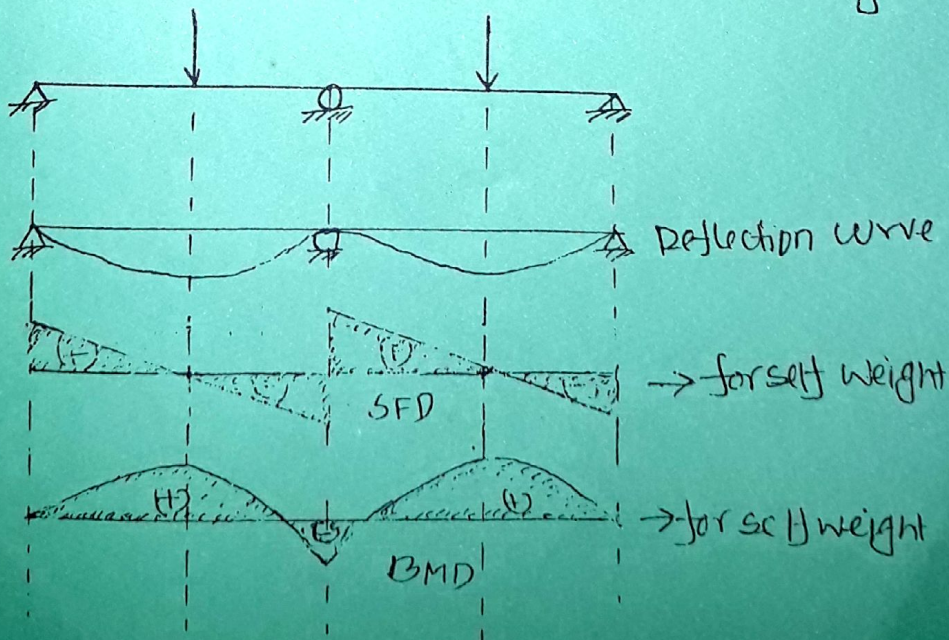 Deflection curve
(+)
(+)
(-)
(-)
→ for self weight
SFD
(+)
(+)
(-)
→ for self weight
BMD